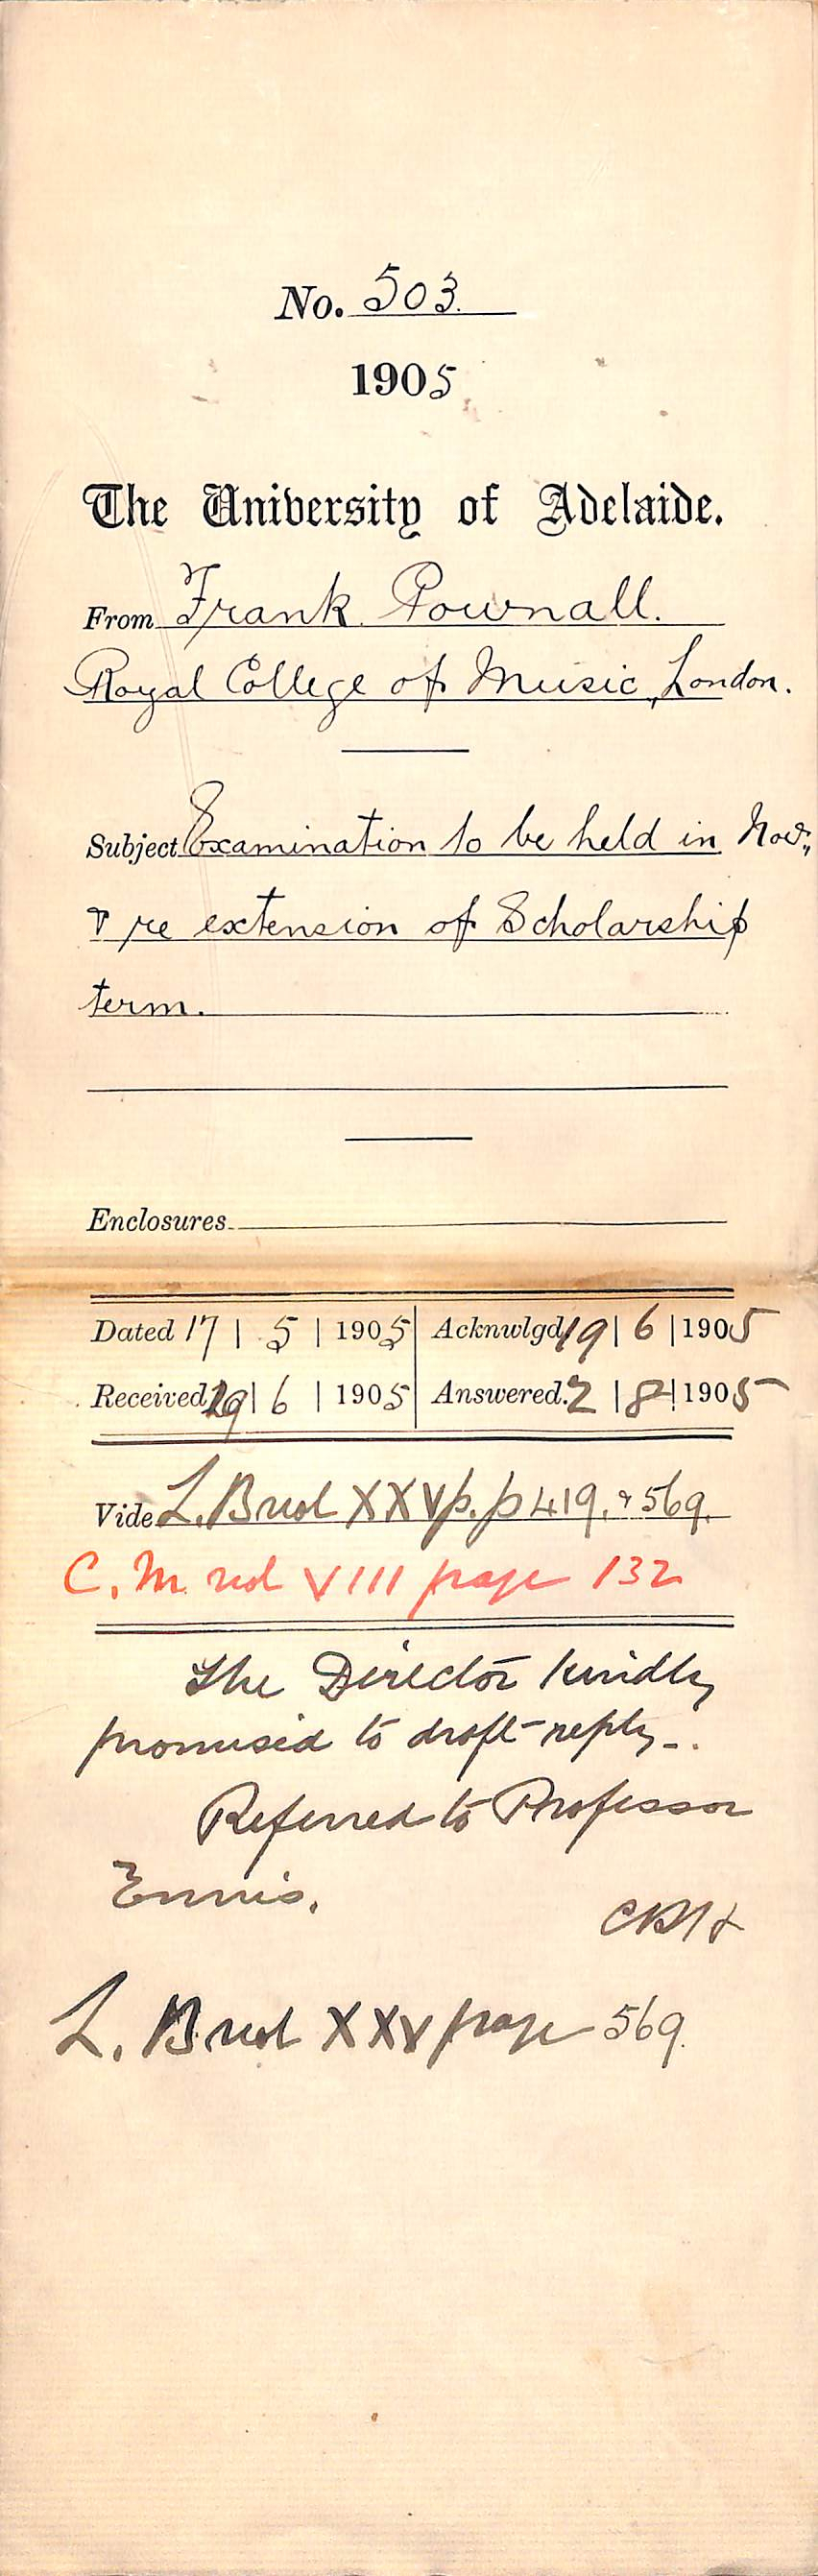 No. 503.
1905
The University of Adelaide.
From Frank Pownall.
Royal College of Music, London.
Subject Examination to be held in Nov.,
& re extension of Scholarship
term.
Enclosures
Dated 17 | 5 | 1905 Acknwlgd 19 | 6 | 1905
Received 19 | 6 | 1905 Answered. 2 | 8 | 1905
Vide L. B vol XXV p. p 419. & 569.
C. M. vol VIII page 132
The Director kindly
promised to draft reply.
Referred to Professor
Ennis.
L. B vol XXV page 569.